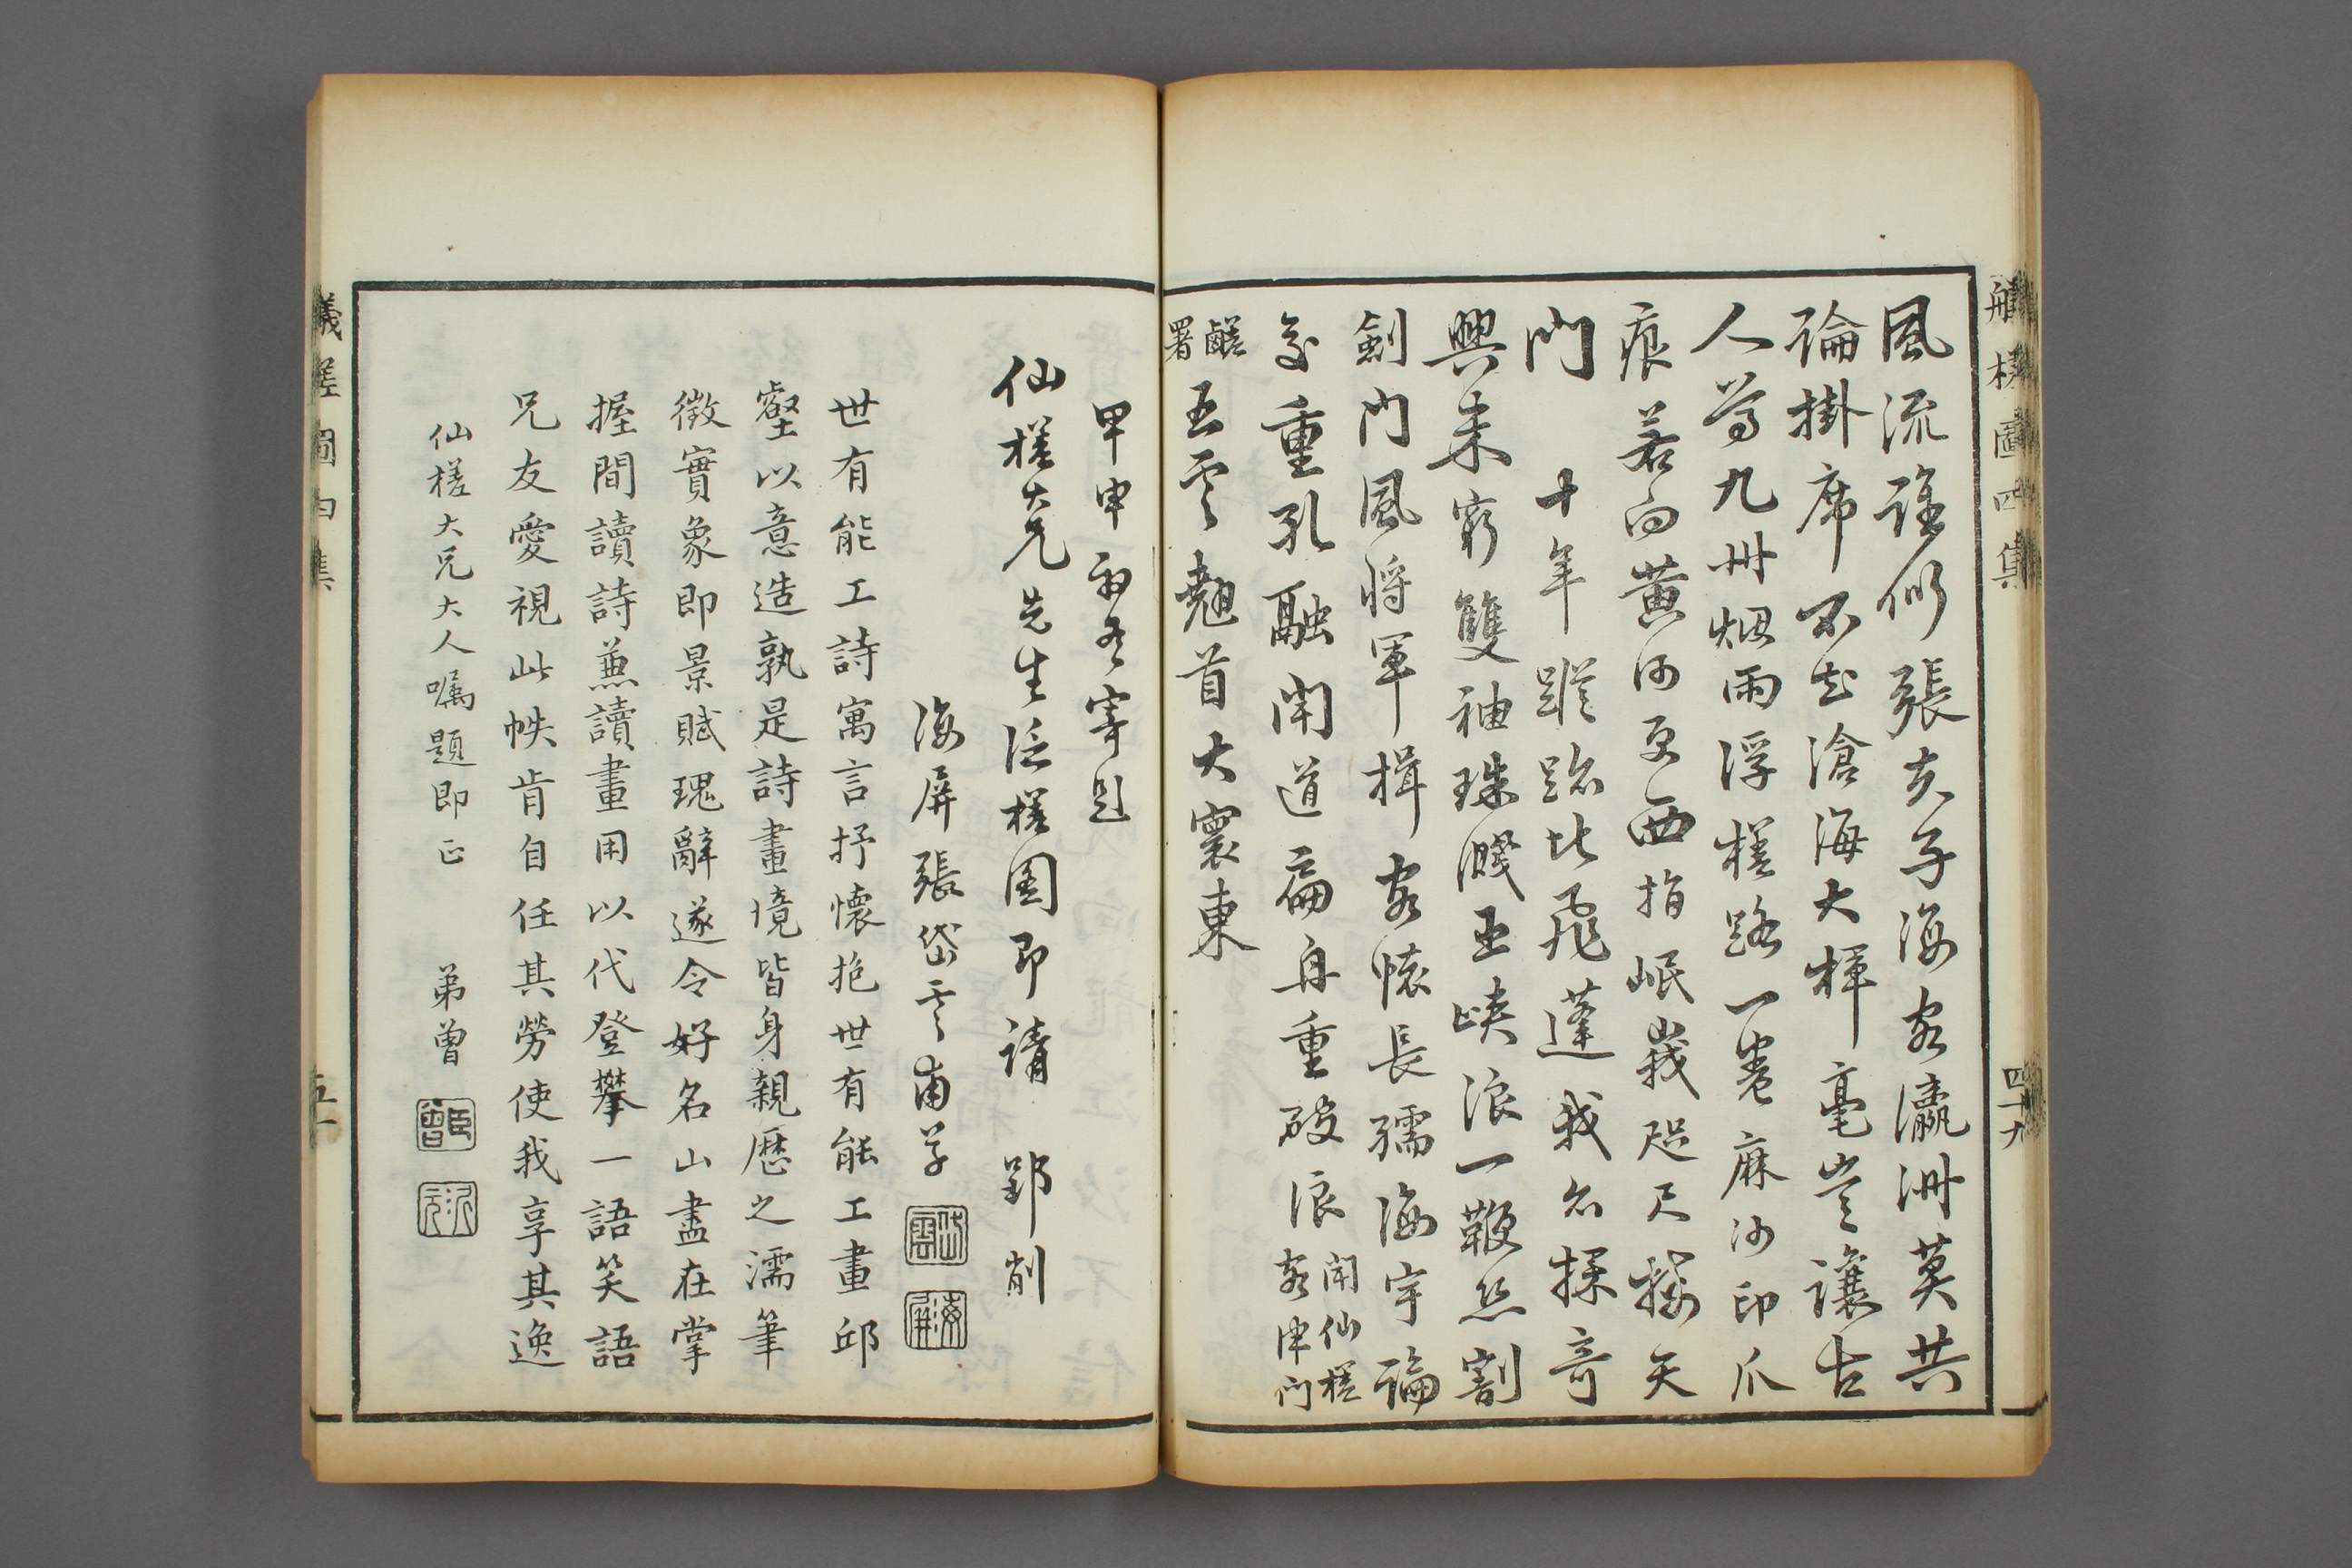 風流誰似張夫子海客瀛洲莫共
論掛席不知滄海大揮毫豈讓古
人尊九州烟雨浮槎路一卷麻沙印爪
痕若向黃河更西指岷峩咫尺接天
門 十年蹤跡比飛蓬我亦探奇
興未窮雙袖珠濺巫峽浪一鞭絲割
劍門風將軍揖客懷長孺海宇論
交重孔融聞道扁舟重破浪聞仙槎客津門
鹺署五雲翹首大寰東
甲申初冬寄題
仙槎大兄先生泛槎圖即請 郢削
海屏張岱雲甫草
世有能工詩寓言抒懷抱世有能工畫邱
壑以意造孰是詩畫境皆身親歷之濡筆
徵實象即景賦瑰辭遂令好名山盡在掌
握間讀詩兼讀畫用以代登攀一語笑語
兄友愛視此帙肯自任其勞使我享其逸
仙槎大兄大人囑題即正 弟曾
槎圖四集
四十九